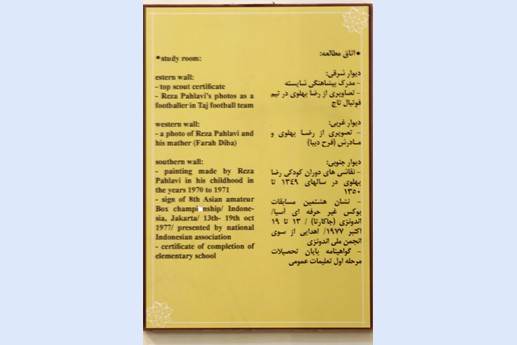 •study room:
estern wall:
- top scout certificate
- Reza Pahlavi's photos as a
footballer in Taj football team
western wall:
- a photo of Reza Pahlavi and
his mather (Farah Diba)
southern wall:
- painting made by Reza
Pahlavi in his childhood in
the years 1970 to 1971
- sign of 8th Asian amateur
Box championship/ Indone-
sia, Jakarta/ 13th- 19th oct
1977/ presented by national
Indonesian association
- certificate of completion of
elementary school
•اتاق مطالعه:
دیوار شرقی:
- مدرک پیشاهنگی شایسته
- تصاویری از رضا پهلوی در تیم
فوتبال تاج
دیوار غربی:
- تصویری از رضا پهلوی و
مادرش (فرح دیبا)
دیوار جنوبی:
- نقاشی های دوران کودکی رضا
پهلوی در سالهای ۱۳۴۹ تا
۱۳۵۰
- نشان هشتمین مسابقات
بوکس غیر حرفه ای آسیا/
اندونزی (جاکارتا) / ۱۳ تا ۱۹
اکتبر ۱۹۷۷/ اهدایی از سوی
انجمن ملی اندونزی
- گواهینامه پایان تحصیلات
مرحله اول تعلیمات عمومی